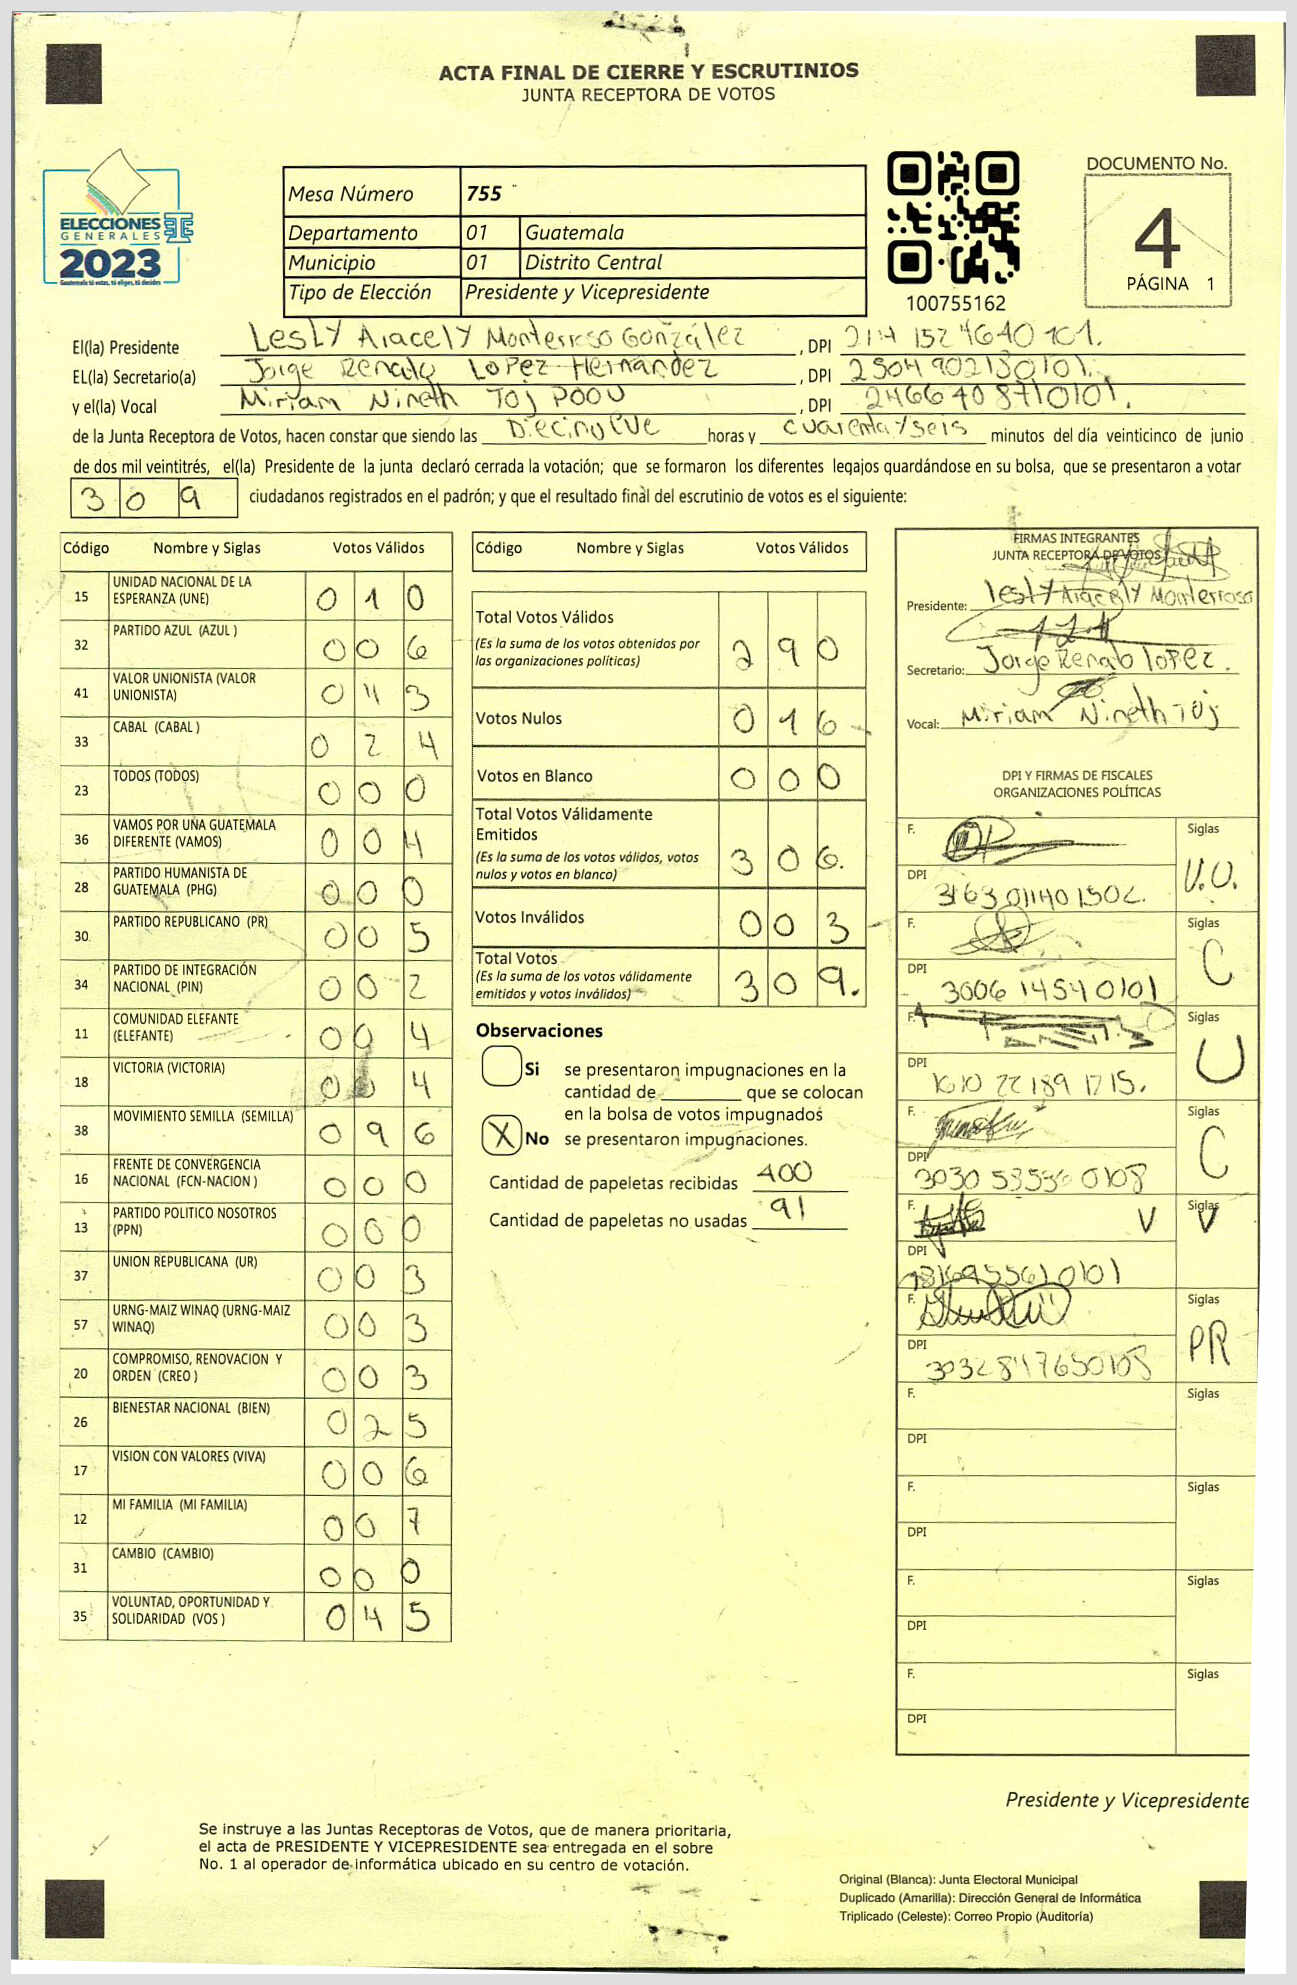 ACTA FINAL DE CIERRE Y ESCRUTINIOS
JUNTA RECEPTORA DE VOTOS
ELECCIONES
GENERALES
2023
Guatemala tú votas, tú eliges, tú decides
Mesa Número 755
Departamento 01 Guatemala
Municipio 01 Distrito Central
Tipo de Elección Presidente y Vicepresidente
100755162
DOCUMENTO No.
4
PÁGINA 1
El(la) Presidente Lesly Aracely Monterroso González, DPI
EL(la) Secretario(a) Jorge Renato Lopez Hernández, DPI 2504902180101.
y el(la) Vocal Miriam Nineth Toj Poou, DPI 2466408710101.
de la Junta Receptora de Votos, hacen constar que siendo las Diecinueve horas y cuarenta y seis minutos del día veinticinco de junio
de dos mil veintitrés, el(la) Presidente de la junta declaró cerrada la votación; que se formaron los diferentes legajos guardándose en su bolsa, que se presentaron a votar
309 ciudadanos registrados en el padrón; y que el resultado final del escrutinio de votos es el siguiente:
Código Nombre y Siglas Votos Válidos
15 UNIDAD NACIONAL DE LA ESPERANZA (UNE) 010
32 PARTIDO AZUL (AZUL ) 006
41 VALOR UNIONISTA (VALOR UNIONISTA) 043
33 CABAL (CABAL ) 024
23 TODOS (TODOS) 000
36 VAMOS POR UNA GUATEMALA DIFERENTE (VAMOS) 004
28 PARTIDO HUMANISTA DE GUATEMALA (PHG) 000
30 PARTIDO REPUBLICANO (PR) 005
34 PARTIDO DE INTEGRACIÓN NACIONAL (PIN) 002
11 COMUNIDAD ELEFANTE (ELEFANTE) 004
18 VICTORIA (VICTORIA) 004
38 MOVIMIENTO SEMILLA (SEMILLA) 096
16 FRENTE DE CONVERGENCIA NACIONAL (FCN-NACION ) 000
13 PARTIDO POLITICO NOSOTROS (PPN) 000
37 UNION REPUBLICANA (UR) 003
57 URNG-MAIZ WINAQ (URNG-MAIZ WINAQ) 003
20 COMPROMISO, RENOVACION Y ORDEN (CREO ) 003
26 BIENESTAR NACIONAL (BIEN) 025
17 VISION CON VALORES (VIVA) 006
12 MI FAMILIA (MI FAMILIA) 007
31 CAMBIO (CAMBIO) 000
35 VOLUNTAD, OPORTUNIDAD Y SOLIDARIDAD (VOS ) 045
Código Nombre y Siglas Votos Válidos
Total Votos Válidos 290
(Es la suma de los votos obtenidos por
las organizaciones políticas)
Votos Nulos 016
Votos en Blanco 000
Total Votos Válidamente
Emitidos 306.
(Es la suma de los votos válidos, votos
nulos y votos en blanco)
Votos Inválidos 003
Total Votos 309.
(Es la suma de los votos válidamente
emitidos y votos inválidos)
Observaciones
Si se presentaron impugnaciones en la
cantidad de ________ que se colocan
en la bolsa de votos impugnados
X No se presentaron impugnaciones.
Cantidad de papeletas recibidas 400
Cantidad de papeletas no usadas 91
FIRMAS INTEGRANTES
JUNTA RECEPTORA DE VOTOS
Presidente: Lesly Aracely Monterroso
Secretario: Jorge Renato Lopez.
Vocal: Miriam Nineth Toj
DPI Y FIRMAS DE FISCALES
ORGANIZACIONES POLÍTICAS
F. Siglas V.U.
DPI 3163011401502.
F. Siglas C
DPI 3006 14540101
F. Siglas U
DPI 1610 22189 1715.
F. Siglas C
DPI
F. V Siglas V
DPI
F. Siglas PR
DPI 3032847650108
F. Siglas
DPI
F. Siglas
DPI
F. Siglas
DPI
F. Siglas
DPI
Presidente y Vicepresidente
Se instruye a las Juntas Receptoras de Votos, que de manera prioritaria,
el acta de PRESIDENTE Y VICEPRESIDENTE sea entregada en el sobre
No. 1 al operador de informática ubicado en su centro de votación.
Original (Blanca): Junta Electoral Municipal
Duplicado (Amarilla): Dirección General de Informática
Triplicado (Celeste): Correo Propio (Auditoría)